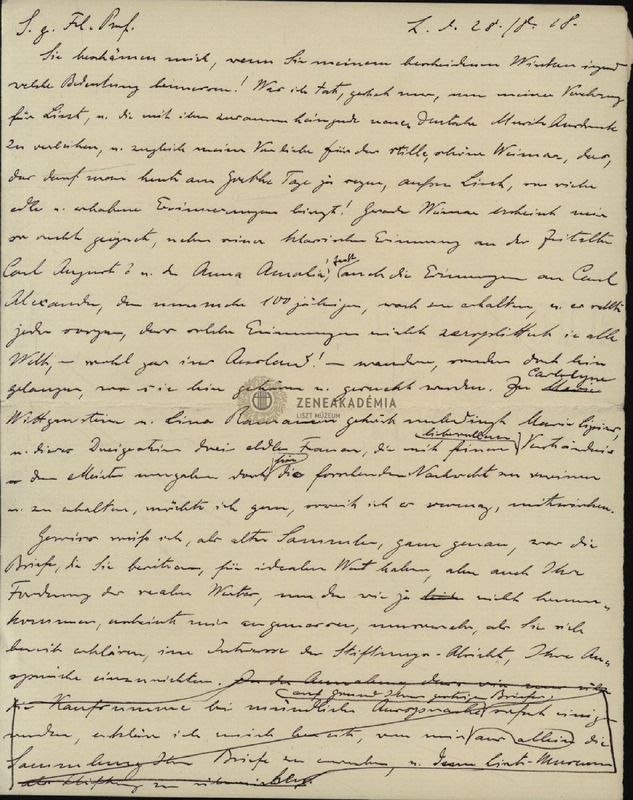 S. g. Frl. Prof. L. d. 28. / 8. 18.
Sie beschämen mich, wenn Sie meinem bescheidenen Wirken irgend
welche Bedeutung beimessen! Was ich tat, geschah nur, um meiner Verehrung
für Liszt, u. die mit ihm zusammenhängende neue deutsche Musik Ausdruck
zu verleihen, u. zugleich meine Vorliebe für das stille, schöne Weimar, das,
das darf man heut am Goethe Tage ja sagen, ausser Liszt, so viele
edle u. erhabene Erinnerungen birgt! Gerade Weimar erscheint mir
so recht geeignet, neben seiner klassischen Erinnerung an der Zeitalter
Carl August's u. der Anna Amalia, auch die Erinnerungen an Carl
Alexander, den nunmehr 100 jährigen, wach zu erhalten, u. er sollte
jeder sorgen, dass solche Erinnerungen nicht zersplittert in alle
Welt, – wohl gar ins Ausland! – wandern, sondern dort hin
gelangen, wo sie hin gehören u. gesucht werden. Zu Marie Carolyne
ZENEAKADÉMIA
LISZT MÚZEUM
Wittgenstein u. Lina Ramann gehört unbedingt Marie Lipsius,
u. dieses Dreigestirn drei edler Frauen, die mit feinem liebevollem Verständnis
den Meister umgaben dort für die forschenden Nachwelt zu vereinen
u. zu erhalten, möchte ich gern, soweit ich es vermag, mitwirken.
Gewiss weiss ich, als alter Sammler, ganz genau, was die
Briefe, die Sie besitzen, für idealen Wert haben, aber auch Ihre
Forderung des realen Wertes, um den wir ja nicht herum-
kommen, erscheint mir angemessen, umsomehr, als Sie sich
bereit erklären, im Interesse der Stiftungs-Absicht, Ihre An-
sprüche einzurichten. In der Annahme dass wir uns über
die Kaufsumme bei mündlicher Aussprache auf Grund Ihres gestrigen Briefes, rasch einigen
werden, erkläre ich mich bereit, von mir aus allein die
Sammlung Ihrer Briefe zu erwerben, u. dem Liszt-Museum
als Stiftung zu